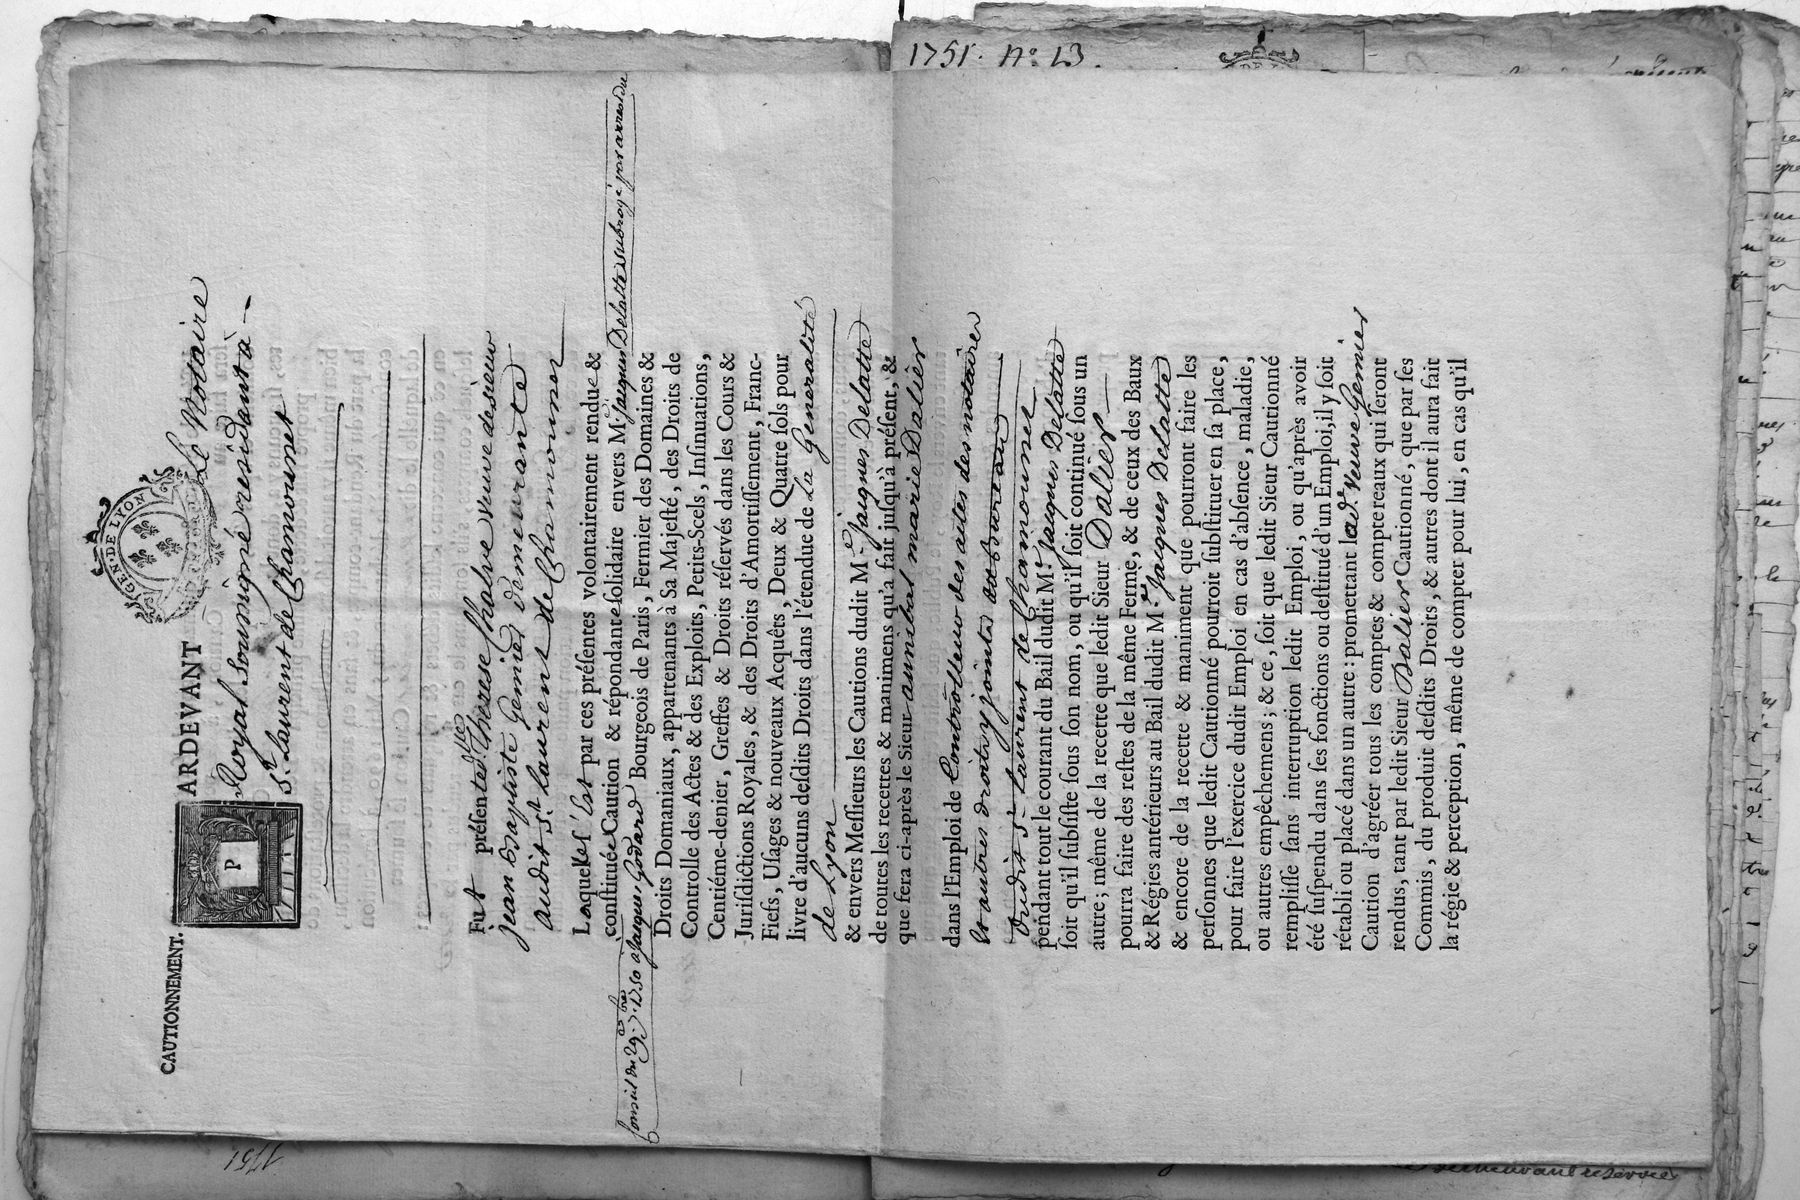 1751. N° 13.
CAUTIONNEMENT.
GEN. DE LYON
PARDEVANT Le Notaire
Royal Soussigné residant à
St. Laurent de Chamousset
Fut présente dlle therese Chalive veuve de sieur
jean Baptiste Gemier demeurante
audit St. laurent de Chamousset
Laquelle s'est par ces présentes volontairement rendue &
constituée Caution & répondante solidaire envers Me. Jacques Delatte subrogé par arrest du
Conseil du 29e. 7bre. 1750 à Jacques Godard Bourgeois de Paris, Fermier des Domaines &
Droits Domaniaux, appartenants à Sa Majesté, des Droits de
Controlle des Actes & des Exploits, Petits-Scels, Insinuations,
Centiéme-denier, Greffes & Droits réservés dans les Cours &
Jurisdictions Royales, & des Droits d'Amortissement, Franc-
Fiefs, Usages & nouveaux Acquêts, Deux & Quatre sols pour
livre d'aucuns desdits Droits dans l'étendue de La Generalité
de Lyon
& envers Messieurs les Cautions dudit Me. Jacques Delatte
de toutes les recettes & manimens qu'a fait jusqu'à présent, &
que fera ci-après le Sieur annibal marie Dalier
dans l'Emploi de Controlleur des actes des notaires
et autres droits y joints au bureau
dudit St. laurent de Chamousset
pendant tout le courant du Bail dudit Me. Jacques Delatte
soit qu'il subsiste sous son nom, ou qu'il soit continué sous un
autre; même de la recette que ledit Sieur Dalier
pourra faire des restes de la même Ferme, & de ceux des Baux
& Régies antérieurs au Bail dudit Me. Jacques Delatte
& encore de la recette & maniment que pourront faire les
personnes que ledit Cautionné pourroit substituer en sa place,
pour faire l'exercice dudit Emploi en cas d'absence, maladie,
ou autres empêchemens; & ce, soit que ledit Sieur Cautionné
remplisse sans interruption ledit Emploi, ou qu'après avoir
été suspendu dans ses fonctions ou destitué d'un Emploi, il y soit
rétabli ou placé dans un autre: promettant lad. veuve Gemier
Caution d'agréer tous les comptes & comptereaux qui seront
rendus, tant par ledit Sieur Dalier Cautionné, que par ses
Commis, du produit desdits Droits, & autres dont il aura fait
la régie & perception, même de compter pour lui, en cas qu'il
1751